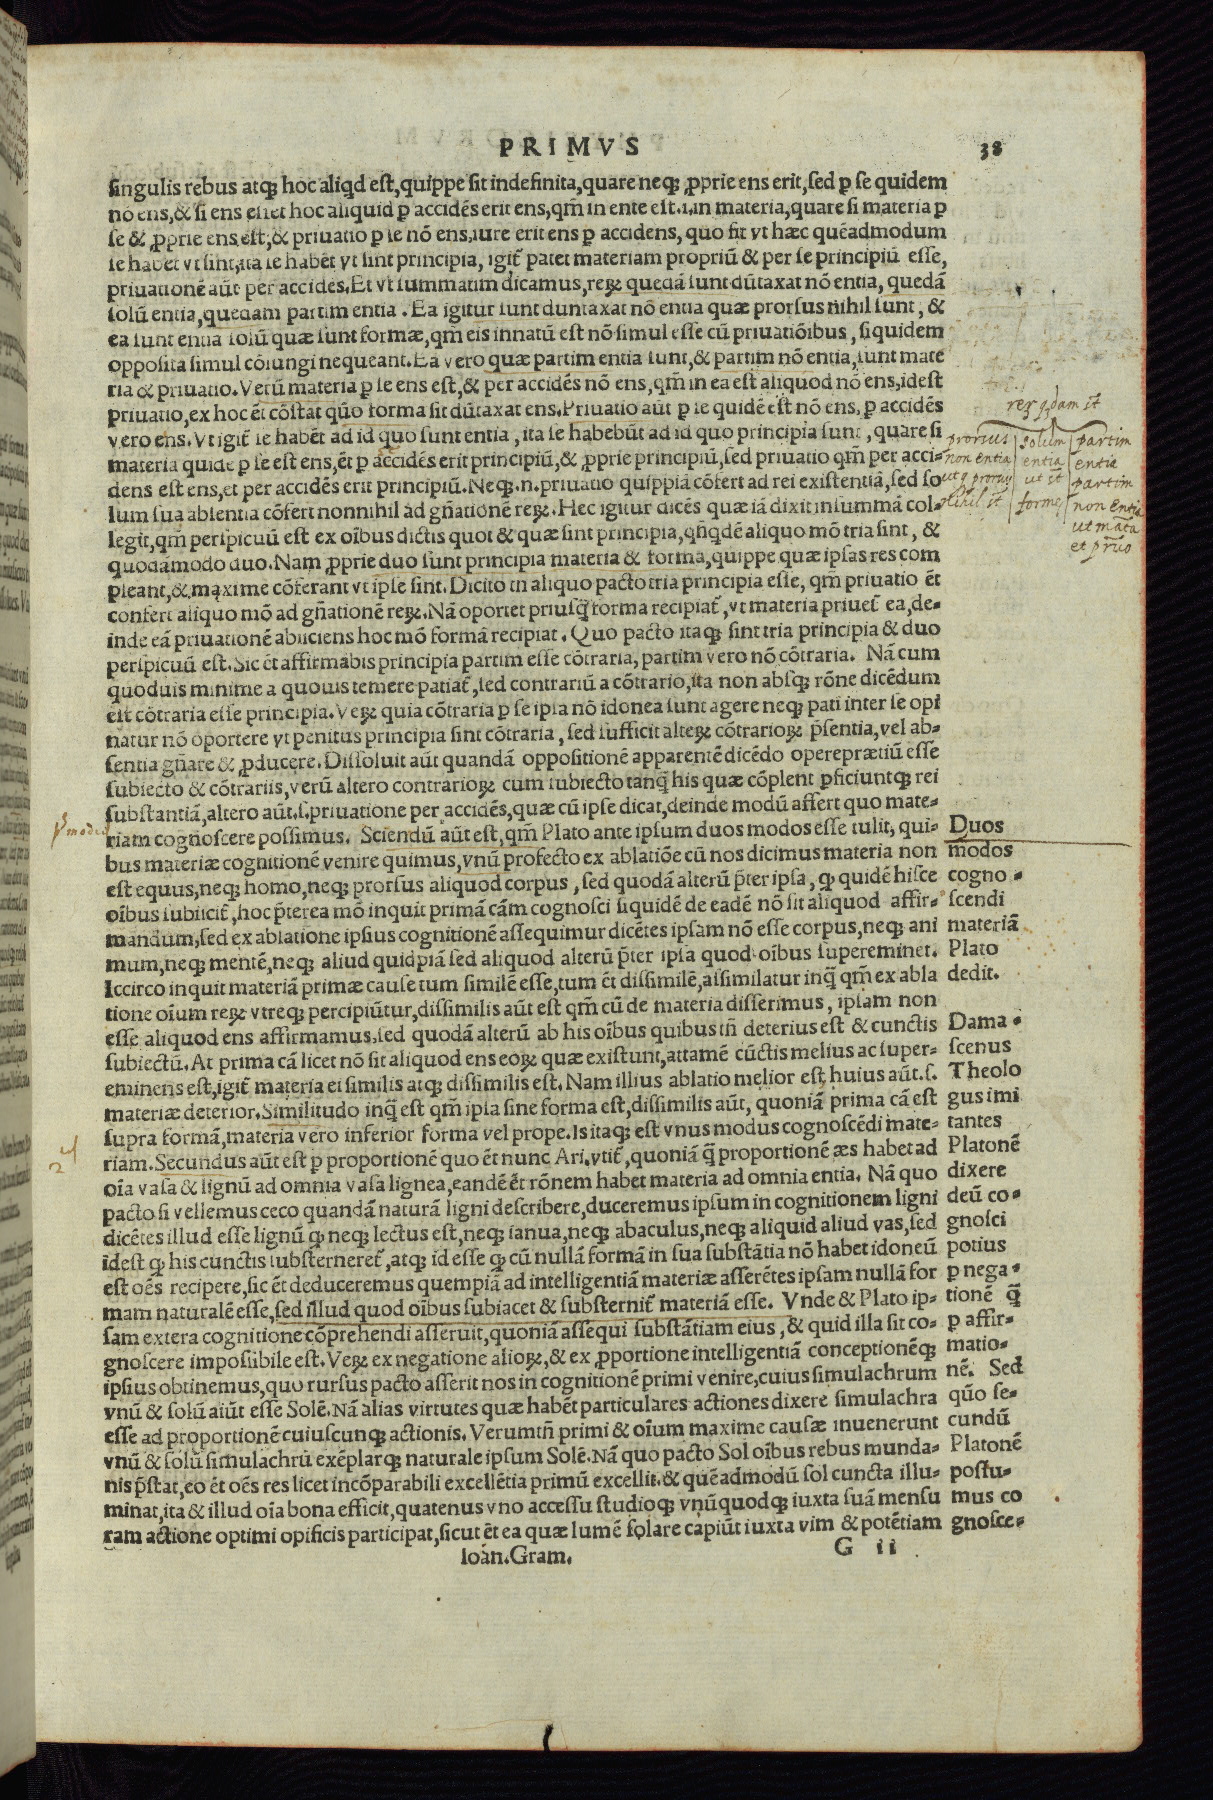 PRIMVS
38
singulis rebus atqꝫ hoc aliqd est,quippe sit indefinita,quare neqꝫ ꝓprie ens erit,sed ꝑ se quidem
nō ens,& si ens esset hoc aliquid ꝑ accidēs erit ens,qm̄ in ente est.i.in materia,quare si materia ꝑ
se & ꝓprie ens est,& priuatio ꝑ se nō ens,iure erit ens ꝑ accidens, quo fit vt hæc quēadmodum
se habēt vt sint,ita se habēt vt sint principia, igit̄ patet materiam propriū & per se principiū esse,
priuationē aūt per accidēs.Et vt summatim dicamus,reꝝ quedā sunt dūtaxat nō entia, quedā
solū entia,quedam partim entia . Ea igitur sunt duntaxat nō entia quæ prorsus nihil sunt, &
ea sunt entia solū quæ sunt formæ,qm̄ eis innatū est nō simul esse cū priuatiōibus, siquidem
opposita simul cōiungi nequeant.Ea vero quæ partim entia sunt,& partim nō entia,sunt mate
ria & priuatio.Verū materia ꝑ se ens est,& per accidēs nō ens,qm̄ in ea est aliquod nō ens,idest
priuatio,ex hoc ēt cōstat quō forma sit dūtaxat ens.Priuatio aūt ꝑ se quidē est nō ens, ꝑ accidēs
vero ens.Vt igit̄ se habēt ad id quo sunt entia, ita se habebūt ad id quo principia sunt, quare si
materia quidē ꝑ se est ens,ēt ꝑ accidēs erit principiū,& ꝓprie principiū,sed priuatio qm̄ per acci-
dens est ens,et per accidēs erit principiū.Neqꝫ.n.priuatio quippiā cōfert ad rei existentiā,sed so
lum sua absentia cōfert nonnihil ad gn̄ationē reꝝ. Hec igitur dicēs quæ iā dixit insummā col-
legit,qm̄ perspicuū est ex oībus dictis quot & quæ sint principia,qn̄qdē aliquo mō tria sint, &
quodāmodo duo.Nam ꝓprie duo sunt principia materia & forma,quippe quæ ipsas res com
pleant,& maxime cōferant vt ipse sint. Dicito tn̄ aliquo pacto tria principia esse, qm̄ priuatio ēt
confert aliquo mō ad gn̄ationē reꝝ.Nā oportet priusq̄ forma recipiat̄, vt materia priuet̄ ea,de-
inde eā priuationē abiiciens hoc mō formā recipiat. Quo pacto itaqꝫ sint tria principia & duo
perspicuū est.Sic ēt affirmabis principia partim esse cōtraria, partim vero nō cōtraria. Nā cum
quoduis minime a quouis temere patiat̄,sed contrariū a cōtrario,ita non absqꝫ rōne dicēdum
est cōtraria esse principia.Veꝝ quia cōtraria ꝑ se ipsa nō idonea sunt agere neqꝫ pati inter se opi
natur nō oportere vt penitus principia sint cōtraria, sed sufficit alteꝝ cōtrarioꝝ p̄sentia,vel ab-
sentia gn̄are & ꝓducere.Dissoluit aūt quandā oppositionē apparentē dicēdo opereprætiū esse
subiecto & cōtrariis,verū altero contrarioꝝ cum subiecto tanq̄ his quæ cōplent ꝑficiuntqꝫ rei
substantiā,altero aūt.s.priuatione per accidēs,quæ cū ipse dicat,deinde modū affert quo mate-
riam cognoscere possimus. Sciendū aūt est,qm̄ Plato ante ipsum duos modos esse tulit, qui-
bus materiæ cognitionē venire quimus,vnū profecto ex ablatiōe cū nos dicimus materia non
est equus,neqꝫ homo,neqꝫ prorsus aliquod corpus, sed quodā alterū p̄ter ipsa, qꝫ quidē hisce
oībus subiicit̄,hoc p̄terea mō inquit primā cām cognosci siquidē de eadē nō sit aliquod affir-
mandum,sed ex ablatione ipsius cognitionē assequimur dicētes ipsam nō esse corpus,neqꝫ ani
mum,neqꝫ mentē,neqꝫ aliud quidpiā sed aliquod alterū p̄ter ipsa quod oībus supereminet.
Iccirco inquit materiā primæ cause tum similē esse,tum ēt dissimilē,assimilatur inq̄ qm̄ ex abla
tione oīum reꝝ vtreqꝫ percipiūtur,dissimilis aūt est qm̄ cū de materia disserimus, ipsam non
esse aliquod ens affirmamus,sed quodā alterū ab his oībus quibus tn̄ deterius est & cunctis
subiectū. At prima cā licet nō sit aliquod ens eoꝝ quæ existunt,attamē cūctis melius ac super-
eminens est,igit̄ materia ei similis atqꝫ dissimilis est. Nam illius ablatio melior est, huius aūt.s.
materiæ deterior.Similitudo inq̄ est qm̄ ipsa sine forma est,dissimilis aūt, quoniā prima cā est
supra formā,materia vero inferior forma vel prope.Is itaqꝫ est vnus modus cognoscēdi mate-
riam.Secundus aūt est ꝑ proportionē quo ēt nunc Ari.vtit̄,quoniā q̄ proportionē æs habet ad
oīa vasa & lignū ad omnia vasa lignea,eandē ēt rōnem habet materia ad omnia entia. Nā quo
pacto si vellemus ceco quandā naturā ligni describere,duceremus ipsum in cognitionem ligni
dicētes illud esse lignū qꝫ neqꝫ lectus est,neqꝫ ianua,neqꝫ abaculus,neqꝫ aliquid aliud vas,sed
idest qꝫ his cunctis substerneret̄,atqꝫ id esse qꝫ cū nullā formā in sua substātia nō habet idoneū
est oēs recipere,sic ēt deduceremus quempiā ad intelligentiā materiæ asserētes ipsam nullā for
mam naturalē esse,sed illud quod oībus subiacet & substernit̄ materiā esse. Vnde & Plato ip-
sam extera cognitione cōprehendi asseruit,quoniā assequi substātiam eius, & quid illa sit co-
gnoscere impossibile est.Veꝝ ex negatione alioꝝ,& ex ꝓportione intelligentiā conceptionēqꝫ
ipsius obtinemus,quo rursus pacto asserit nos in cognitionē primi venire,cuius simulachrum
vnū & solū aiūt esse Solē.Nā alias virtutes quæ habēt particulares actiones dixere simulachra
esse ad proportionē cuiuscunqꝫ actionis.Verumtn̄ primi & oīum maxime causæ inuenerunt
vnū & solū simulachrū exēplarqꝫ naturale ipsum Solē.Nā quo pacto Sol oībus rebus munda-
nis p̄stat,eo ēt oēs res licet incōparabili excellētia primū excellit.& quēadmodū sol cuncta illu-
minat,ita & illud oīa bona efficit,quatenus vno accessu studioqꝫ vnūquodqꝫ iuxta suā mensu
ram actione optimi opificis participat,sicut ēt ea quæ lumē solare capiūt iuxta vim & potētiam
Ioan.Gram.
G ii
reꝝ qdam st̄
prorsus
non entia
ut q prorsus
nihil st̄
solum
entia
ut st̄
forme
partim
entia
partim
non entia
ut mat̄a
et pri̅uo
modus
2
Duos
modos
cogno-
scendi
materiā
Plato
dedit.
Dama-
scenus
Theolo
gus imi
tantes
Platonē
dixere
deū co-
gnosci
potius
ꝑ nega-
tionē q̄
ꝑ affir-
matio-
nē. Sed
quō se-
cundū
Platonē
possu-
mus co
gnosce-